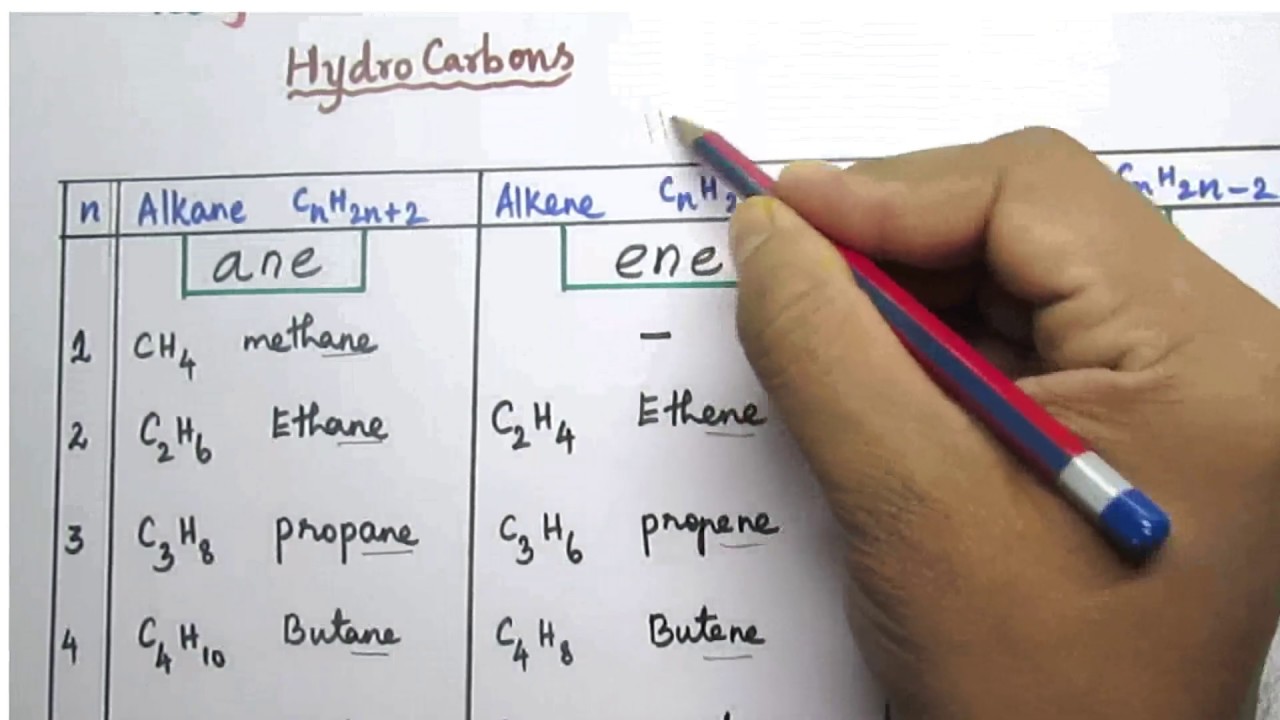 HydroCarbons
n Alkane CₙH₂ₙ₊₂ Alkene CₙH₂ CₙH₂ₙ₋₂
ane ene
1 CH₄ methane –
2 C₂H₆ Ethane C₂H₄ Ethene
3 C₃H₈ propane C₃H₆ propene
4 C₄H₁₀ Butane C₄H₈ Butene